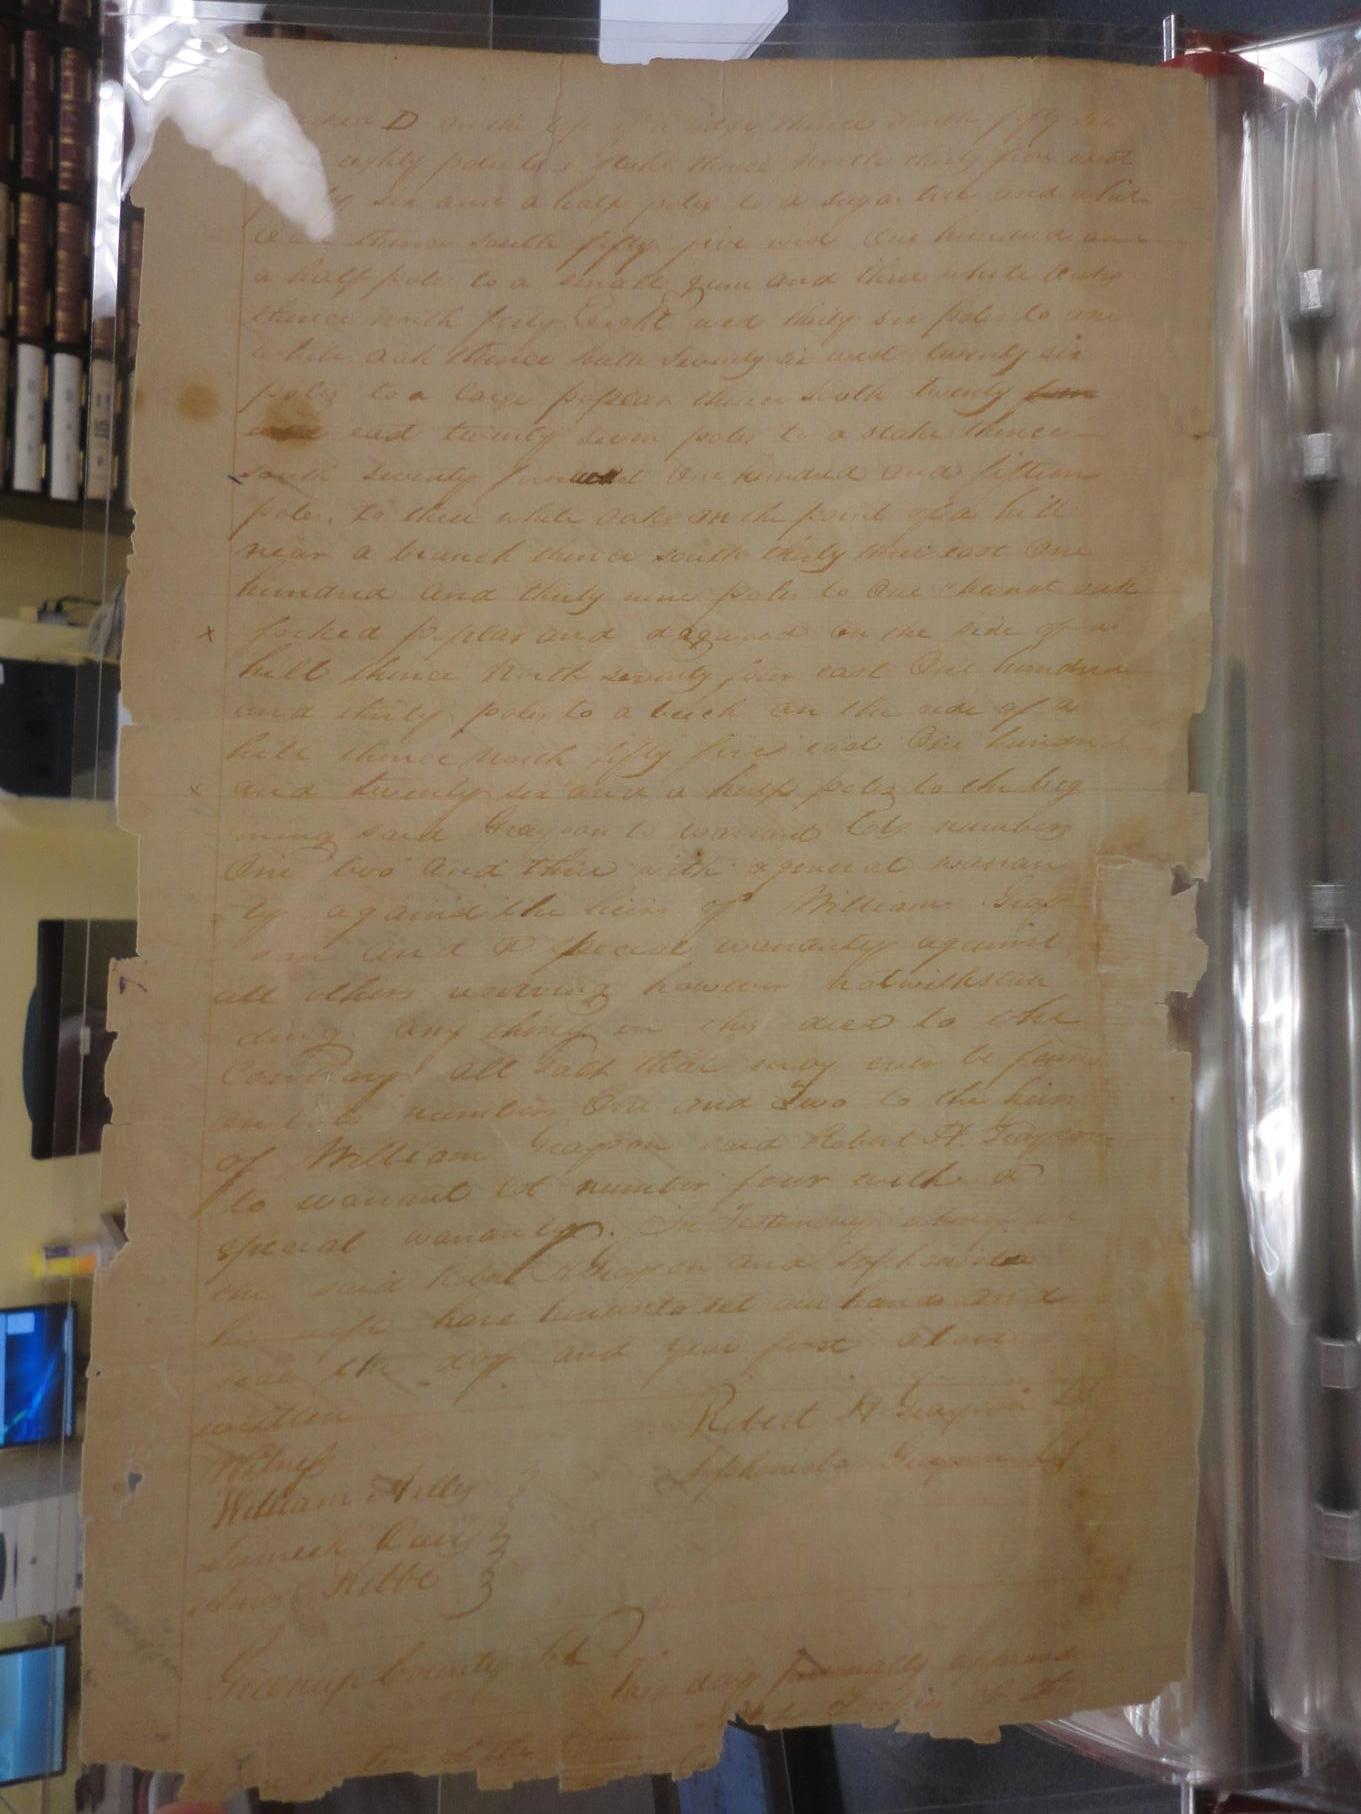 D on the top of a ridge thence South fifty six
eighty poles to a stake thence North thirty five west
six and a half poles to a sugar tree and white
Oak thence south fifty five west One hundred and
a half poles to a small gum and three white Oaks
thence north forty Eight west thirty six poles to one
white oak thence South Seventy six west twenty six
poles to a large poplar thence South twenty
east twenty seven poles to a stake thence
south seventy four west One hundred and fifteen
poles to three white oaks on the point of a hill
near a branch thence south thirty three east One
hundred and thirty nine poles to One chesnut oak
forked poplar and dogwood on the side of a
hill thence North seventy four east One hundred
and thirty poles to a beech on the side of a
hill thence North fifty five east One hundred
and twenty six and a half poles to the beg
ning said Grayson to warrant Lots numbers
One two and three with a general warran
ty against the heirs of William Gray
son and a special warranty against
all others reserving however notwithstan
ding any thing in this deed to the
Contrary all Salt that may ever be found
on lots numbers One and Two to the heirs
of William Grayson said Robert H Grayson
to warrant lot number four with a
special warranty. In Testimony whereof we
the said Robert H Grayson and Sophonisba
his wife have hereunto set our hands and
seals the day and year first above
written
Robert H Grayson LS
Witness
Sophonisba Grayson LS
William
Lamech Davis
Amos Kibbe
Greenup County Sct
This day personally appeared